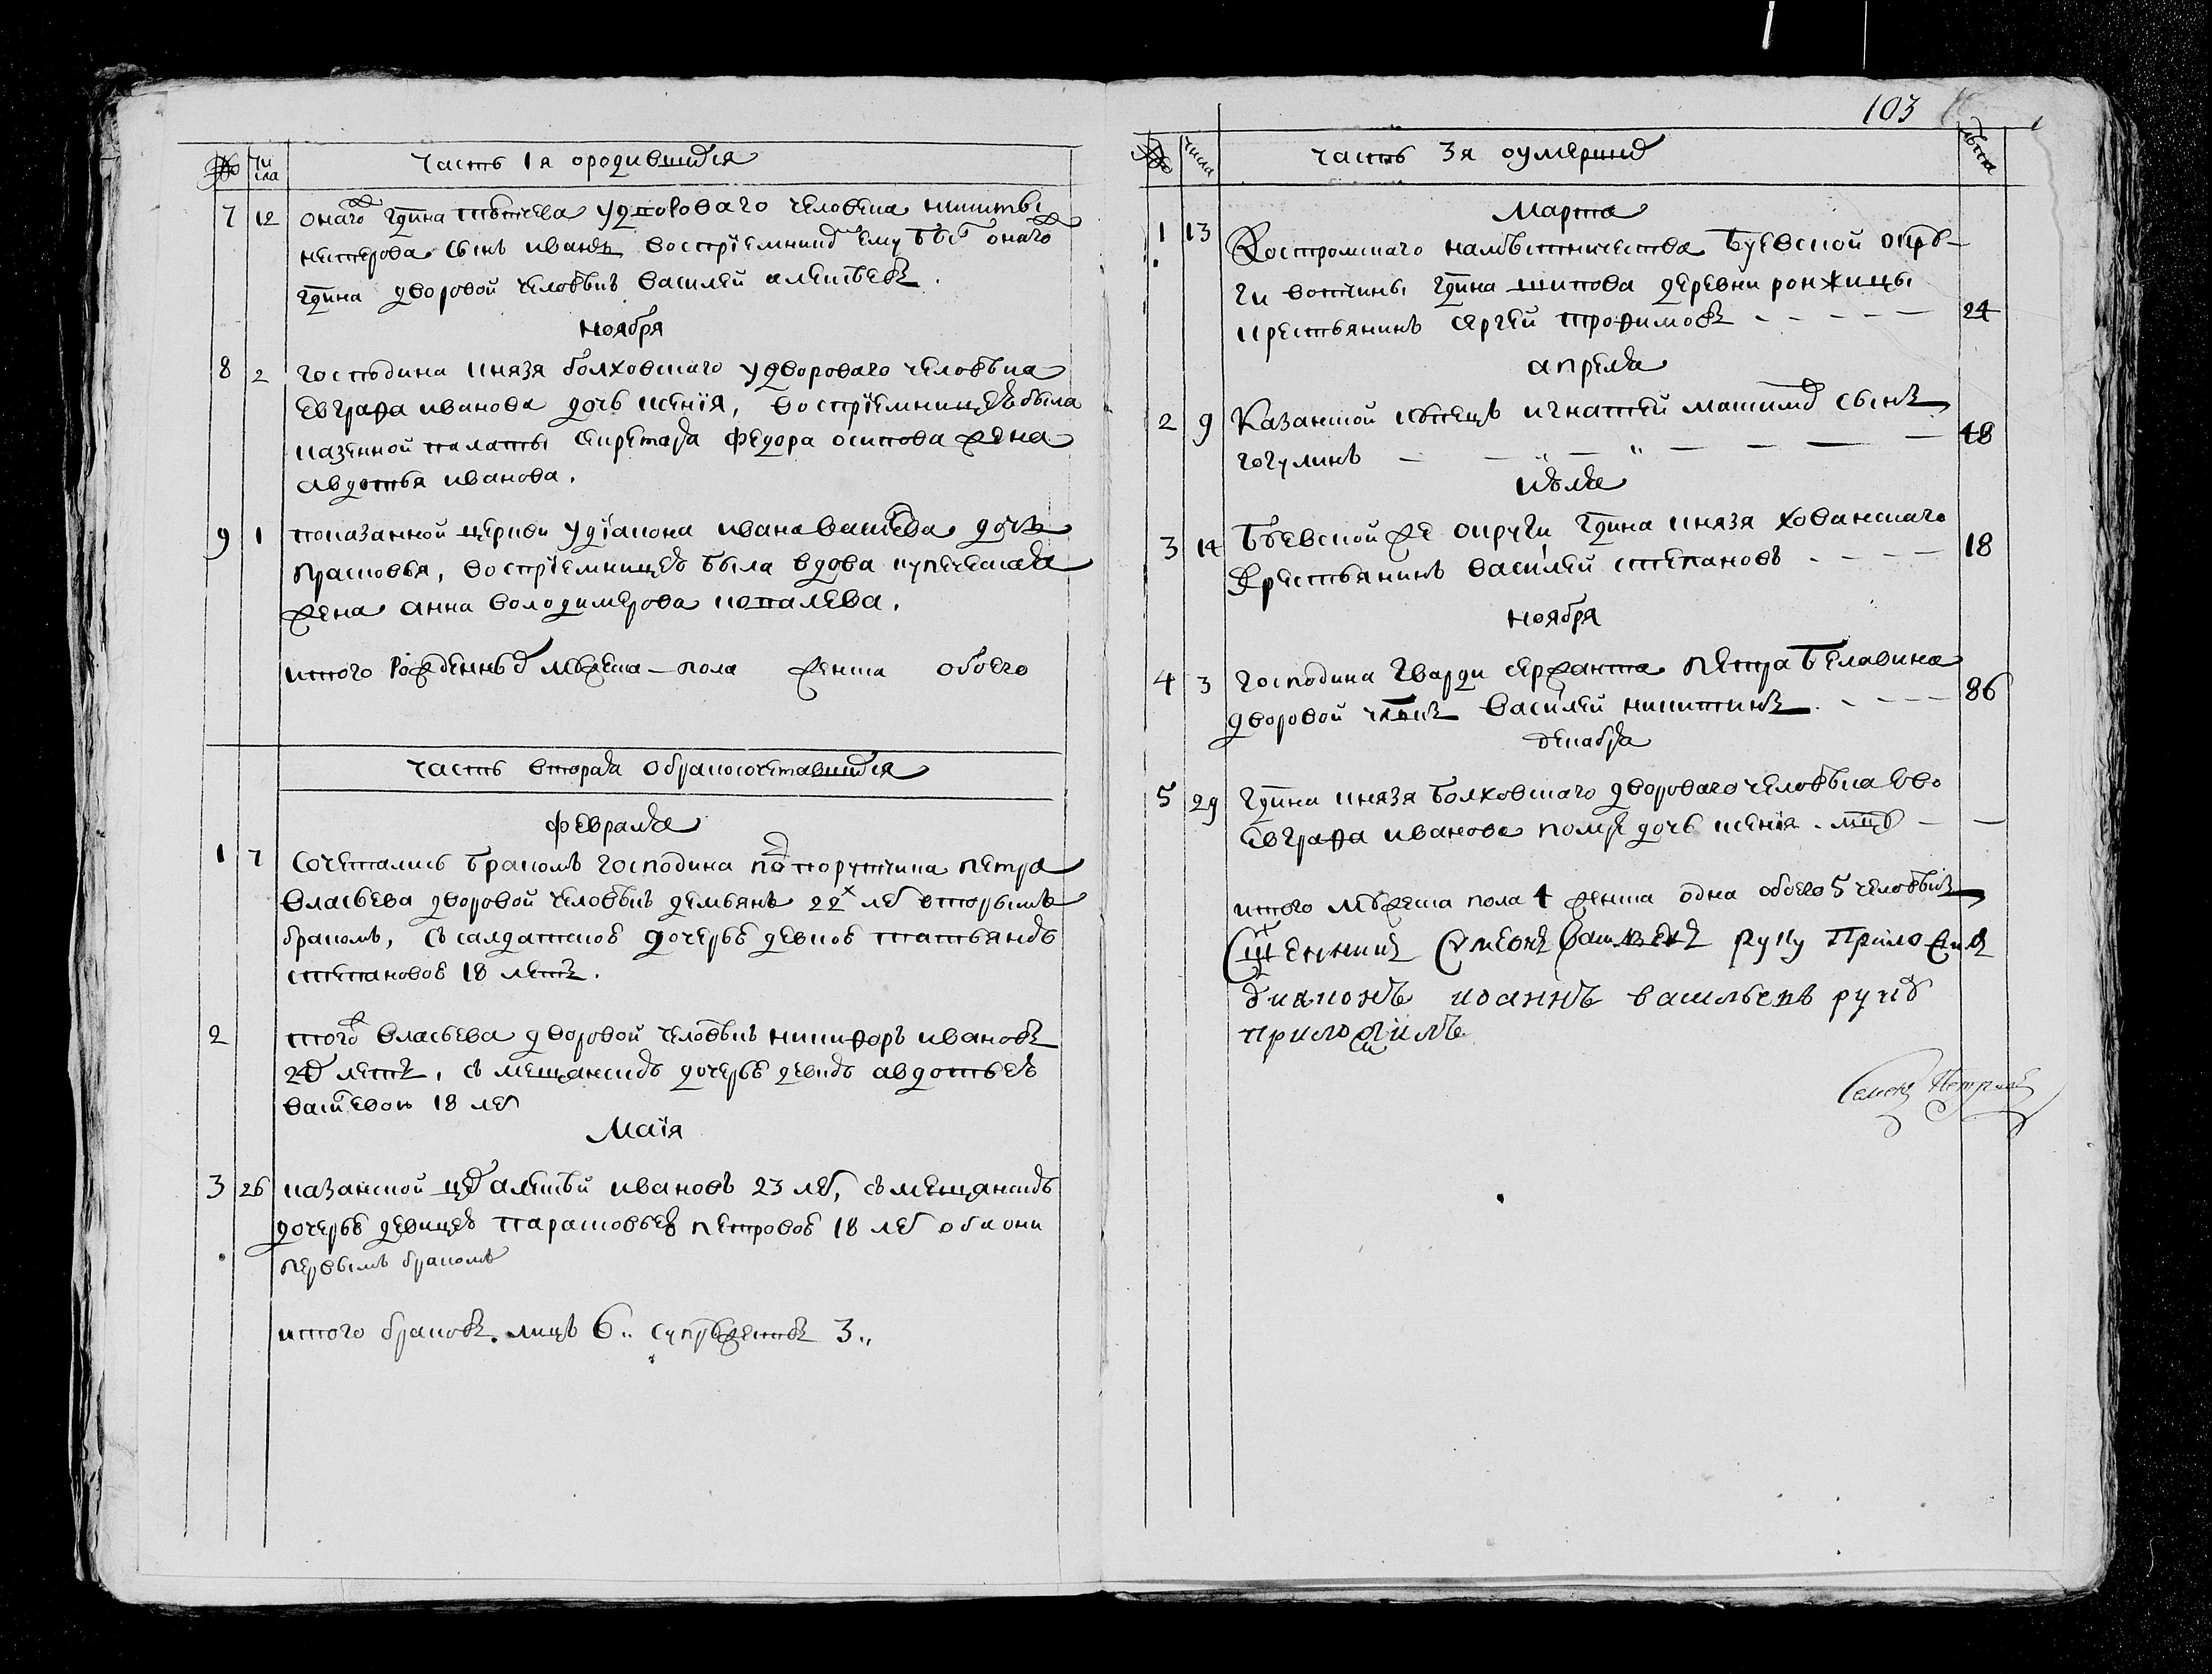 №
числа
часть 1я ородившихся
7 12 онаго гдина удворового человека никиты
нестерова сынъ иванъ восприемникъ ему былъ онаго
гдина дворовой человѣкъ василей алексѣевъ.
ноября
8 2 господина князя болховскаго удворового человѣка
евграфа иванова дочь ксенїя, восприемницею была
казенной палаты секретаря федора осипова жена
авдотья иванова.
9 1 показанной церкви удїакона ивана васильева дочь
прасковья, восприемницею была вдова купеческая
жена анна володимерова копалева.
итого рожденныхъ мужеска-пола женска обоего
часть вторая обракосочетавшихся
февраля
1 7 сочетались бракомъ господина подпорутчика петра
власьева дворовой человѣкъ демьянъ 22х лет вторымъ
бракомъ, съ салдатской дочерью девкою татьяною
степановою 18 летъ.
2 того власьева дворовой человѣкъ никифоръ ивановъ
летъ, с мещанскою дочерью девкою авдотьею
васильевою 18 лет
маїя
3 26 казанской цех алексѣй ивановъ 23 лет, съ мещанскою
дочерью девицею парасковьею петровою 18 лет оба они
первымъ бракомъ
итого браковъ. лицъ 6.. супружествъ 3..
103
№
числа
часть 3я оумершихъ
лѣта
марта
1 13 Костромскаго намѣстничества буевской окру-
ги вотчины гдина шипова деревни ронжицы
крестьянинъ сергей трофимовъ - - - - - 24
апреля
2 9 Казанской купецъ игнатей максимов сынъ
гогулинъ - - - - - 48
июля
3 14 буевской же округи гдина князя хованскаго
крестьянинъ василей степановъ - - - - 18
ноября
4 3 господина гвардии сержанта петра белавина
дворовой члвкъ василей никитинъ. - - - - 86
декабря
5 29 гдина князя болховскаго дворового человѣка ево
евграфа иванова дочь ксенїя - -
итого мужеска пола 4 женска одна обоего 5 человѣкъ
Сщенникъ Симеонъ руку Приложилъ
диаконъ иоаннъ васильевъ руку
приложилъ